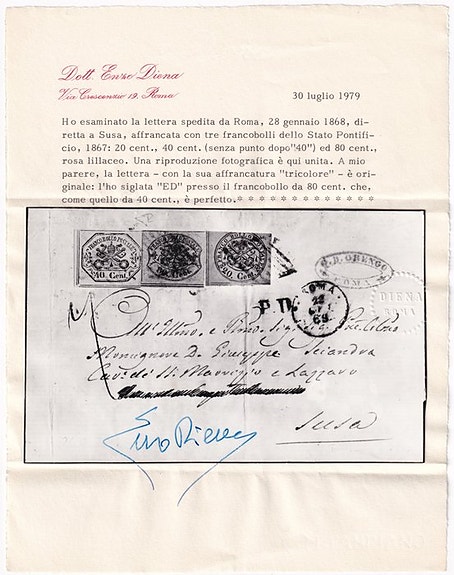 Dott. Enzo Diena
Via Crescenzio 19. Roma
30 luglio 1979
Ho esaminato la lettera spedita da Roma, 28 gennaio 1868, di-
retta a Susa, affrancata con tre francobolli dello Stato Pontifi-
cio, 1867: 20 cent., 40 cent. (senza punto dopo"40") ed 80 cent.,
rosa lillaceo. Una riproduzione fotografica è qui unita. A mio
parere, la lettera - con la sua affrancatura "tricolore" - è ori-
ginale: l'ho siglata "ED" presso il francobollo da 80 cent. che,
come quello da 40 cent., è perfetto.* * * * * * * * * * * * *
FRANCO BOLLO PONTIFICIO
40 Cent
20 Cent
G.B. ORENGO
ROMA
ROMA
68
P.D.
DIENA
ROMA
Monsignore D. Giuseppe Sciandra
Cav. di St. Maurizio e Lazzaro
Susa
Enzo Diena